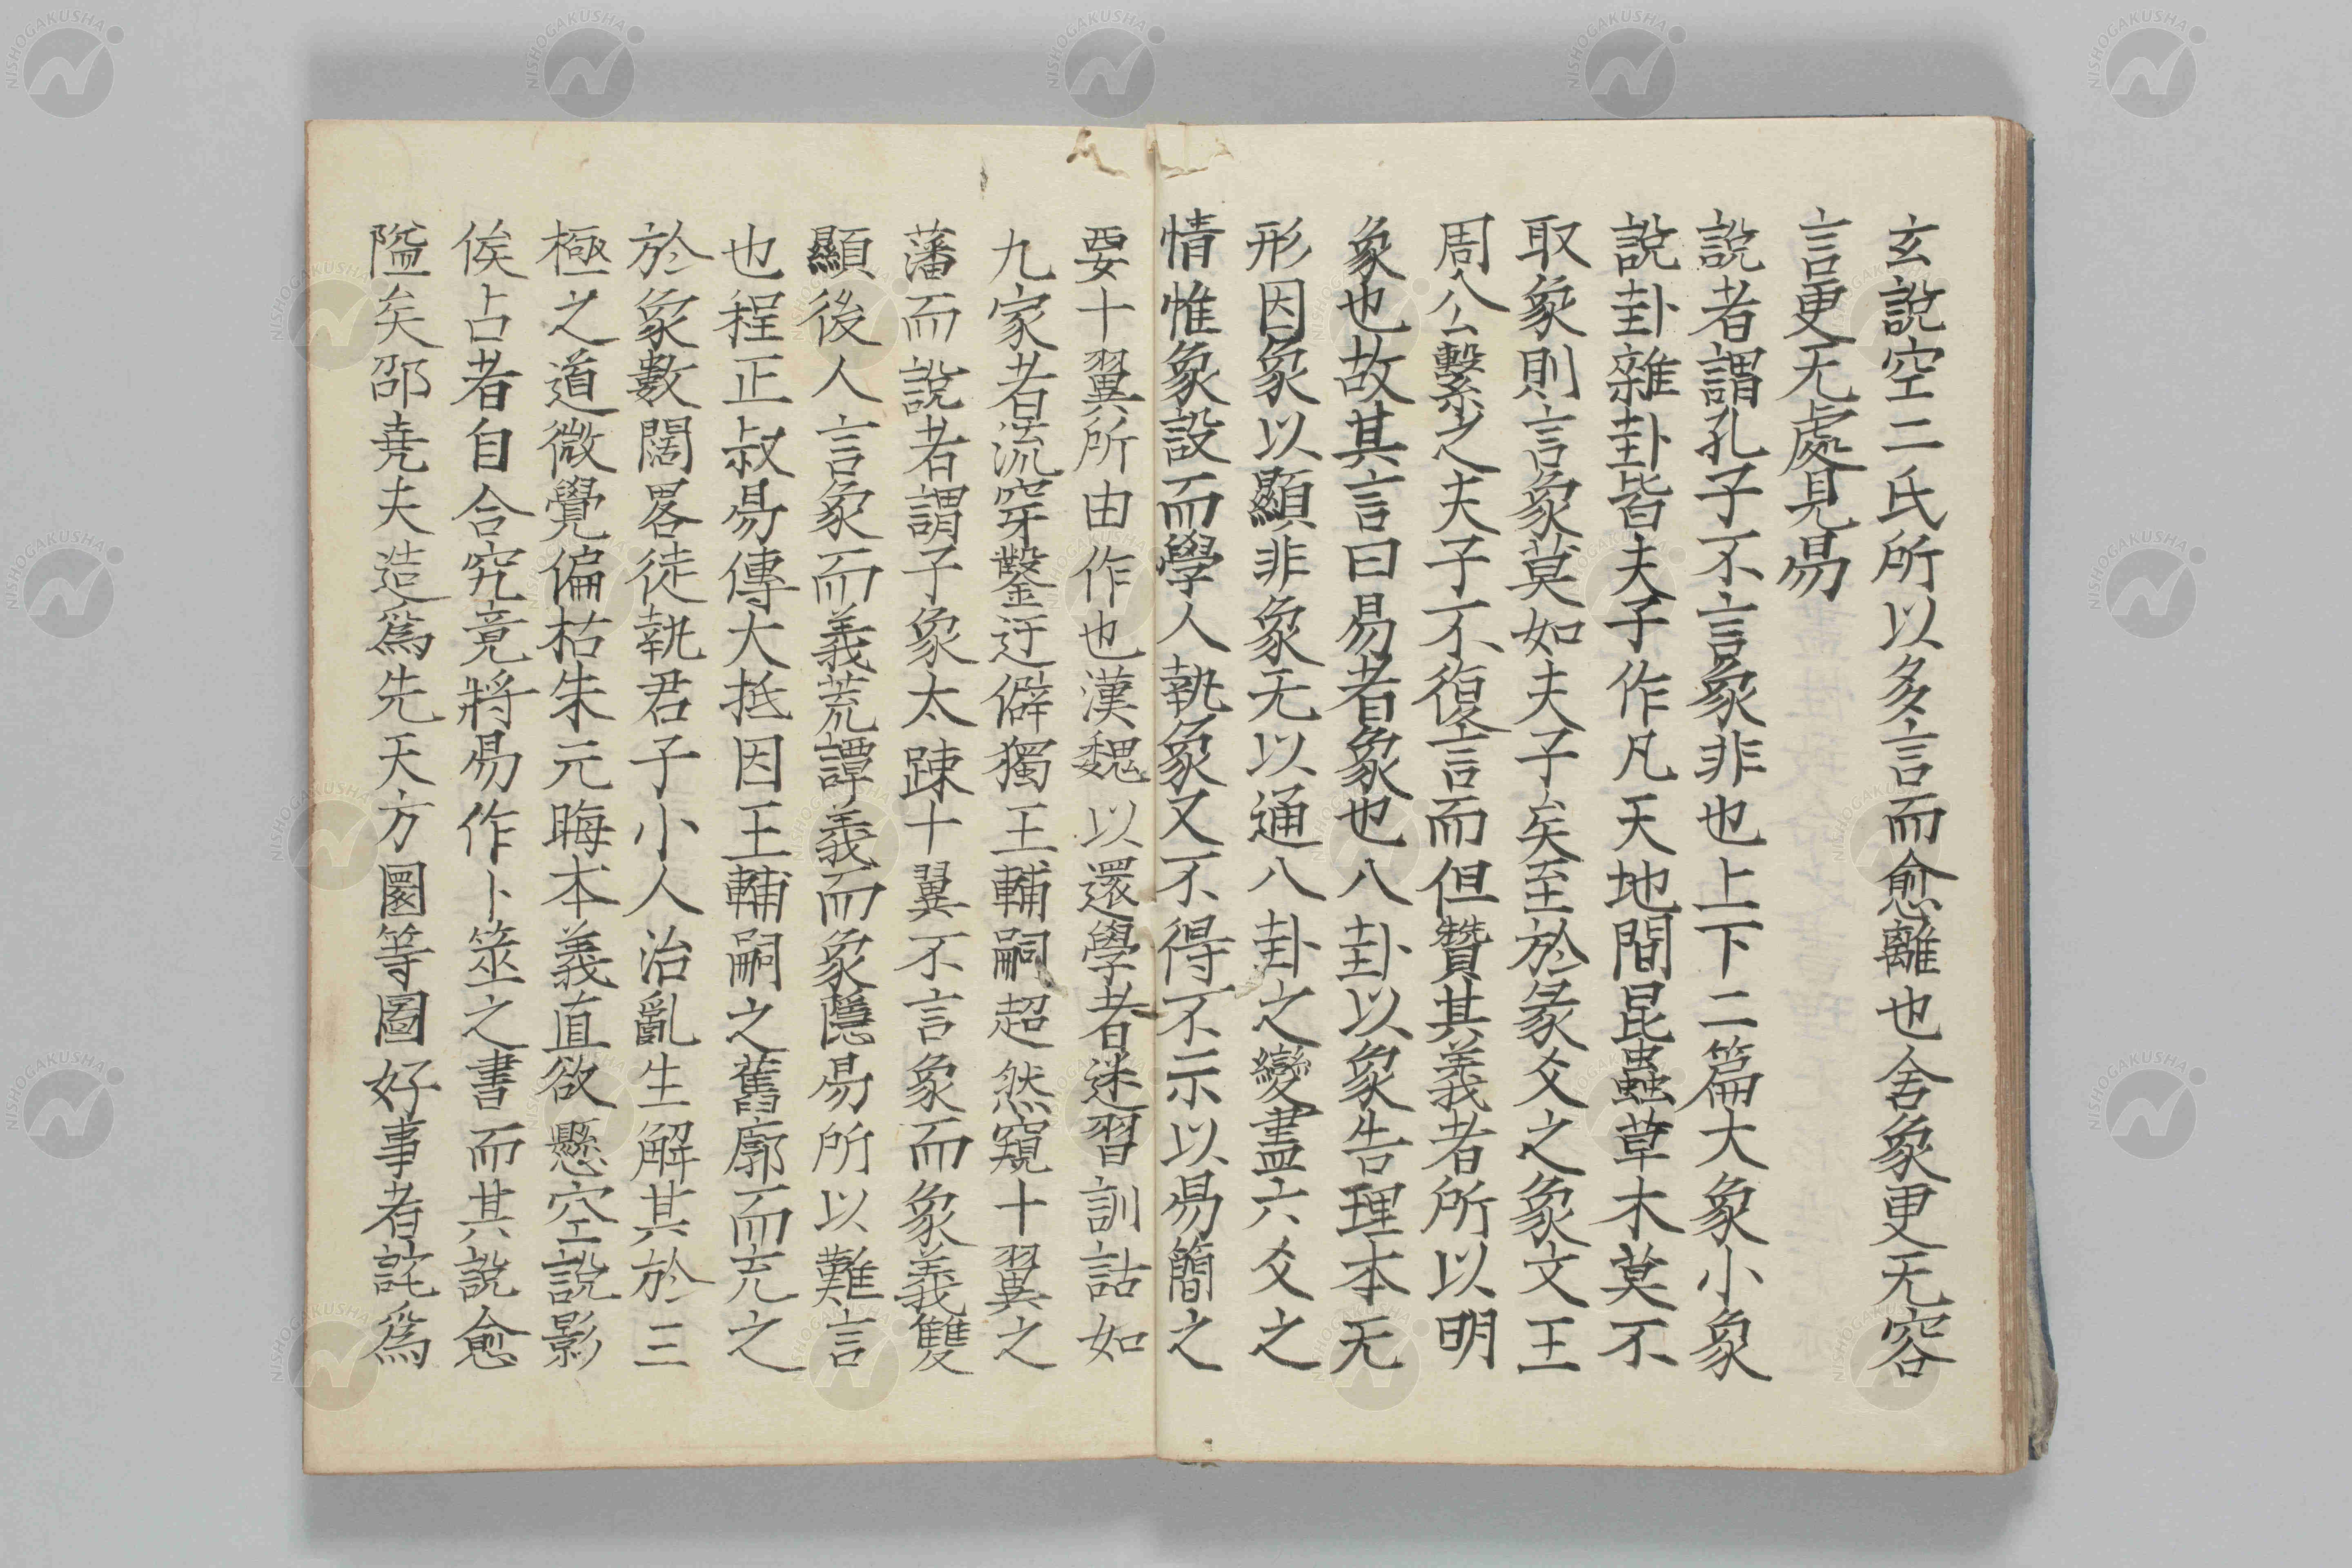 玄說空二氏所以多言而愈離也舍象更无容
言更无處見易
說者謂孔子不言象非也上下二篇大象小象
說卦雜卦皆夫子作凡天地間昆蟲草木莫不
取象則言象莫如夫子矣至於彖爻之象文王
周公繫之夫子不復言而但贊其義者所以明
象也故其言曰易者象也八卦以象告理本无
形因象以顯非象无以通八卦之變盡六爻之
情惟象設而學人執象又不得不示以易簡之
要十翼所由作也漢魏以還學者迷習訓詁如
九家者流穿鑿迂僻獨王輔嗣超然窺十翼之
藩而說者謂子象太踈十翼不言象而象義雙
顯後人言象而義荒譚義而象隱易所以難言
也程正叔易傳大抵因王輔嗣之舊廓而充之
於象數闊畧徒執君子小人治亂生解其於三
極之道微覺偏枯朱元晦本義直欲懸空說影
俟占者自合究竟將易作卜筮之書而其說愈
隘矣邵堯夫造爲先天方圜等圖好事者詫爲
NISHOGAKUSHA